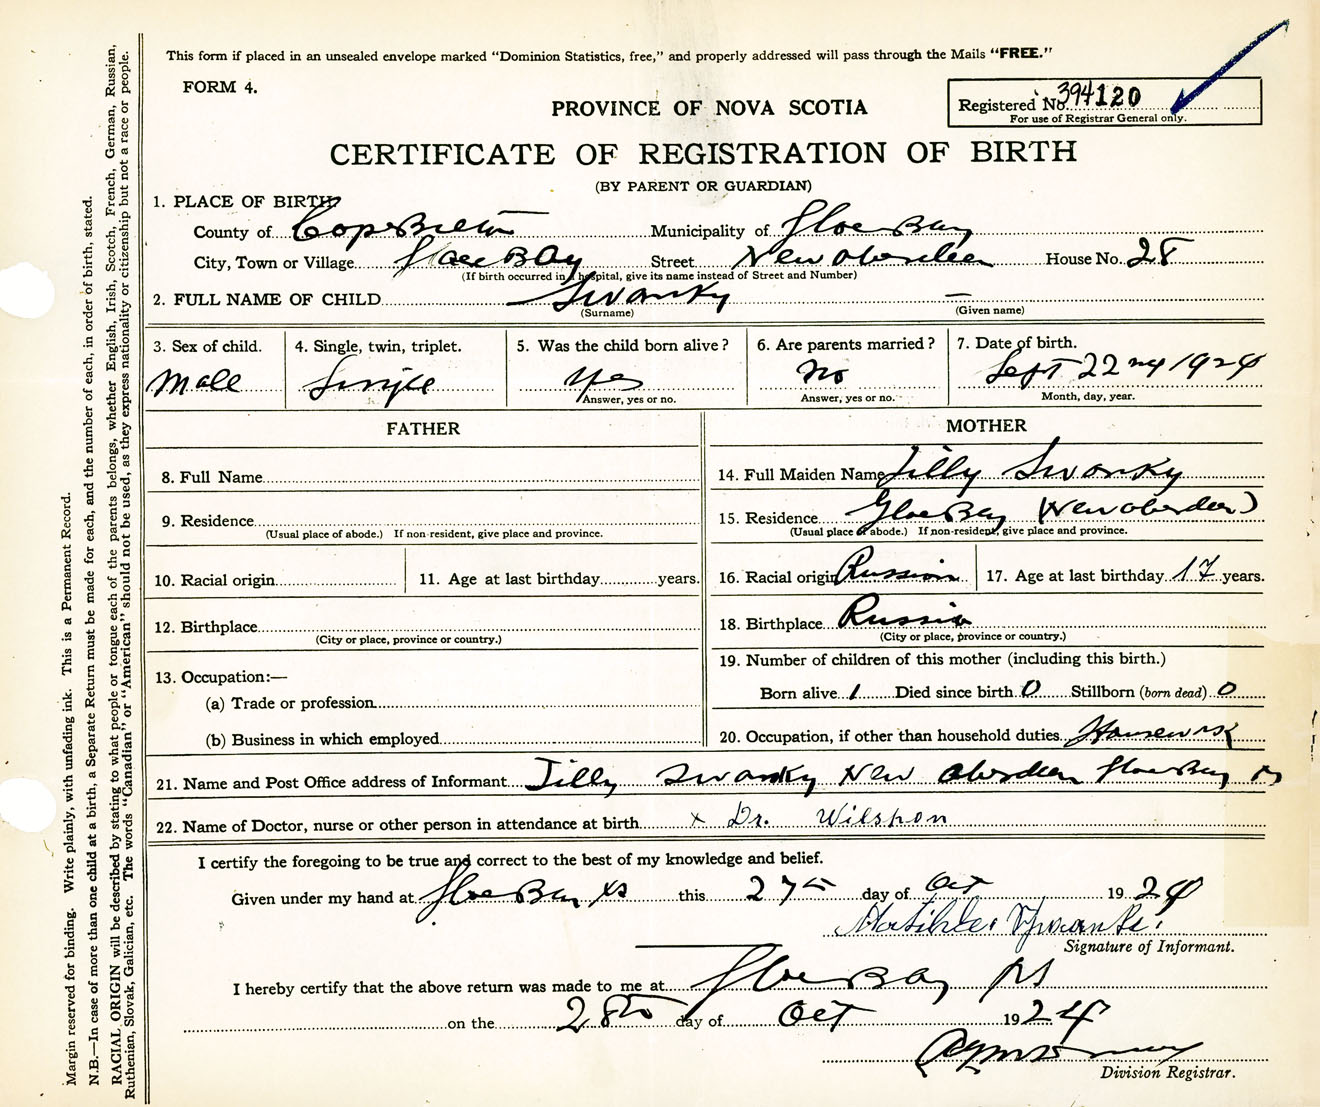 This form if placed in an unsealed envelope marked "Dominion Statistics, free," and properly addressed will pass through the Mails "FREE."
FORM 4.
Registered No. 394120
For use of Registrar General only.
PROVINCE OF NOVA SCOTIA
CERTIFICATE OF REGISTRATION OF BIRTH
(BY PARENT OR GUARDIAN)
1. PLACE OF BIRTH
County of Cape Breton Municipality of Glace Bay
City, Town or Village Glace Bay Street New Aberdeen House No. 28
(If birth occurred in a hospital, give its name instead of Street and Number)
2. FULL NAME OF CHILD Swanky —
(Surname) (Given name)
3. Sex of child. 4. Single, twin, triplet. 5. Was the child born alive? 6. Are parents married? 7. Date of birth.
Male Single Yes No Sept 22nd 1924
Answer, yes or no. Answer, yes or no. Month, day, year.
FATHER MOTHER
8. Full Name 14. Full Maiden Name Tilly Swanky
9. Residence 15. Residence Glace Bay (New Aberdeen)
(Usual place of abode.) If non-resident, give place and province. (Usual place of abode.) If non-resident, give place and province.
10. Racial origin 11. Age at last birthday years. 16. Racial origin Russian 17. Age at last birthday 17 years.
12. Birthplace 18. Birthplace Russia
(City or place, province or country.) (City or place, province or country.)
13. Occupation:— 19. Number of children of this mother (including this birth.)
(a) Trade or profession Born alive 1 Died since birth 0 Stillborn (born dead) 0
(b) Business in which employed 20. Occupation, if other than household duties Housework
21. Name and Post Office address of Informant Tilly Swanky New Aberdeen Glace Bay
22. Name of Doctor, nurse or other person in attendance at birth x Dr. Wilspon
I certify the foregoing to be true and correct to the best of my knowledge and belief.
Given under my hand at Glace Bay NS this 27th day of Oct 1924
Signature of Informant.
I hereby certify that the above return was made to me at Glace Bay NS
on the 28th day of Oct 1924
Division Registrar.
Margin reserved for binding. Write plainly, with unfading ink. This is a Permanent Record.
N.B.—In case of more than one child at a birth, a Separate Return must be made for each, and the number of each, in order of birth, stated.
RACIAL ORIGIN will be described by stating to what people or tongue each of the parents belongs, whether English, Irish, Scotch, French, German, Russian,
Ruthenian, Slovak, Galician, etc. The words "Canadian" or "American" should not be used, as they express nationality or citizenship but not a race or people.